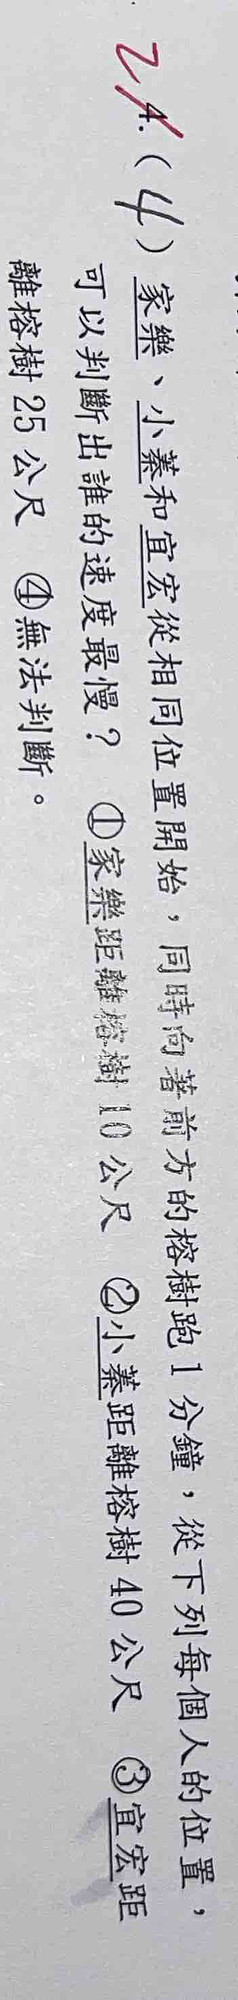 2 4. ( 4 ) 家樂、小蓁和宜宏從相同位置開始，同時向著前方的榕樹跑 1 分鐘，從下列每個人的位置，
可以判斷出誰的速度最慢？ ①家樂距離榕樹 10 公尺 ②小蓁距離榕樹 40 公尺 ③宜宏距
離榕樹 25 公尺 ④無法判斷。